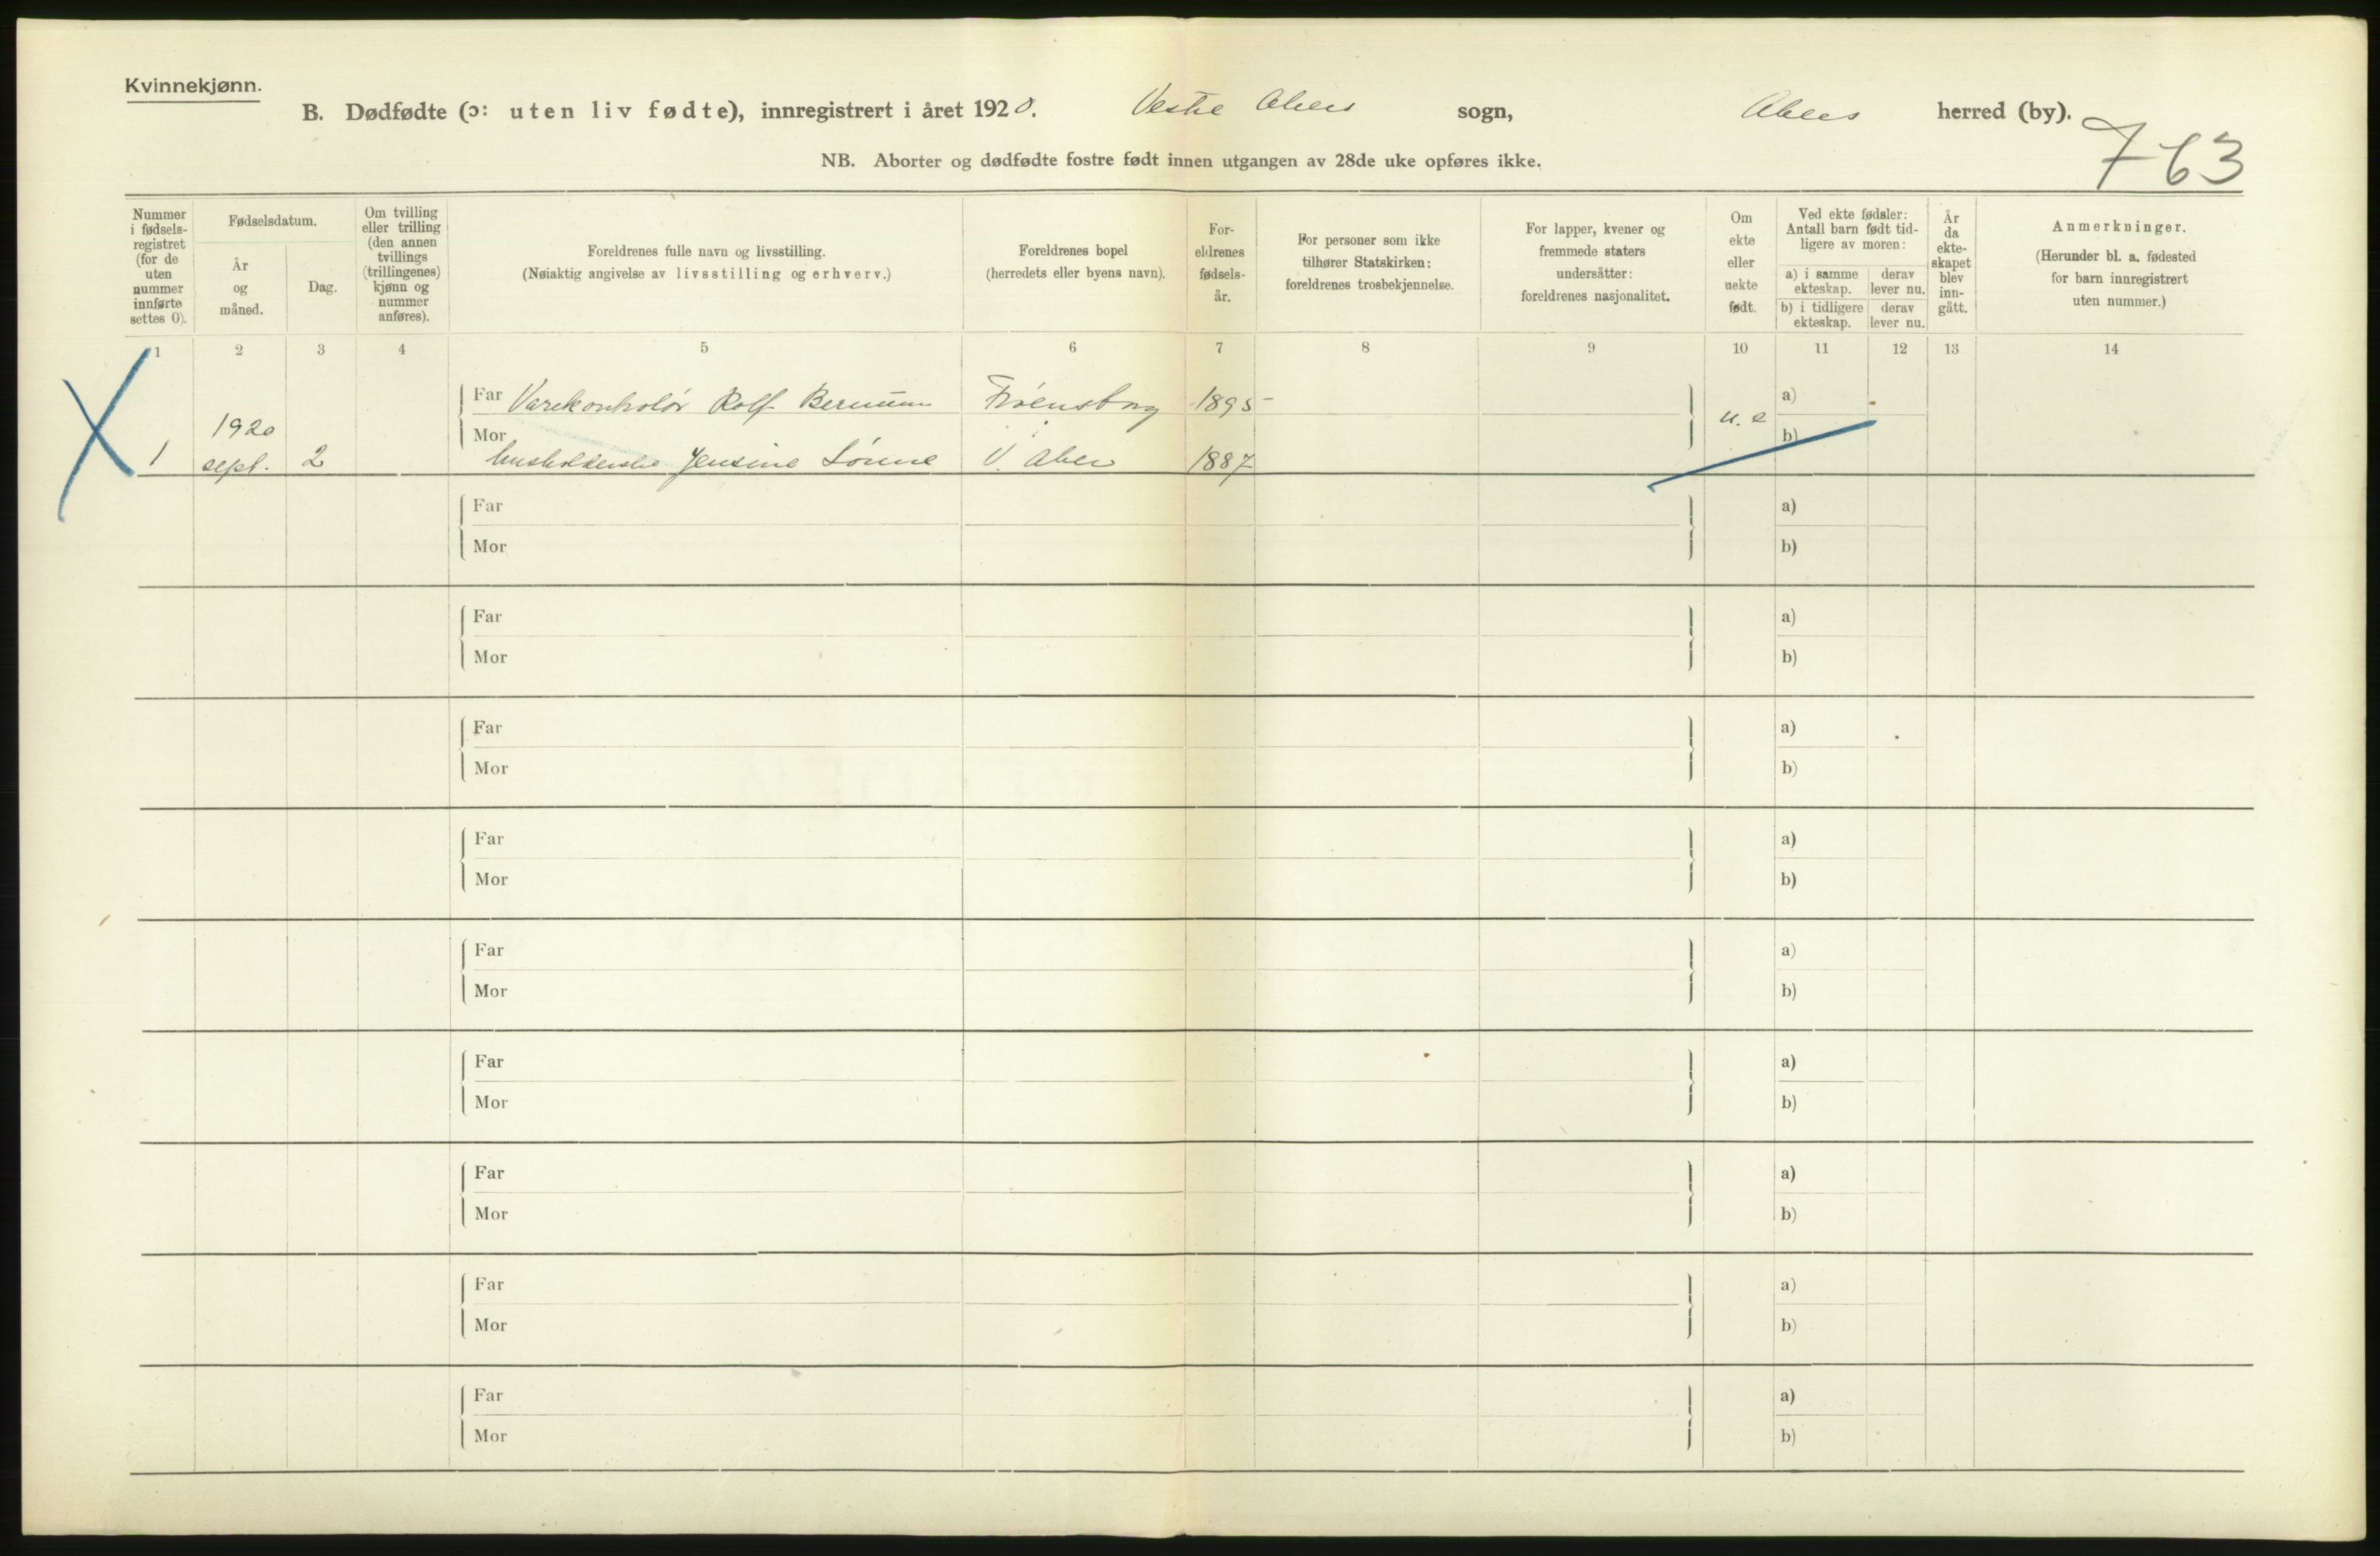 Kvinnekjønn.
B. Dødfødte (ɔ: uten liv fødte), innregistrert i året 1920. Vestre Akers sogn, Akers herred (by).
763
NB. Aborter og dødfødte fostre født innen utgangen av 28de uke opføres ikke.
Nummer i fødsels-registret (for de uten nummer innførte settes 0).
Fødselsdatum.
År og måned.
Dag.
Om tvilling eller trilling (den annen tvillings (trillingenes) kjønn og nummer anføres).
Foreldrenes fulle navn og livsstilling.
(Nøiaktig angivelse av livsstilling og erhverv.)
Foreldrenes bopel
(herredets eller byens navn).
For-eldrenes fødsels-år.
For personer som ikke tilhører Statskirken: foreldrenes trosbekjennelse.
For lapper, kvener og fremmede staters undersåtter: foreldrenes nasjonalitet.
Om ekte eller uekte født.
Ved ekte fødsler: Antall barn født tid-ligere av moren:
a) i samme ekteskap.
derav lever nu.
b) i tidligere ekteskap.
derav lever nu.
År da ekte-skapet blev inn-gått.
Anmerkninger.
(Herunder bl. a. fødested for barn innregistrert uten nummer.)
1 2 3 4 5 6 7 8 9 10 11 12 13 14
Far Varekontrolør Rolf 1895 a)
1920 u. e
Mor b)
1 sept. 2 husholderske Jensine V. Aker 1887
Far a)
Mor b)
Far a)
Mor b)
Far a)
Mor b)
Far a)
Mor b)
Far a)
Mor b)
Far a)
Mor b)
Far a)
Mor b)
Far a)
Mor b)
Far a)
Mor b)